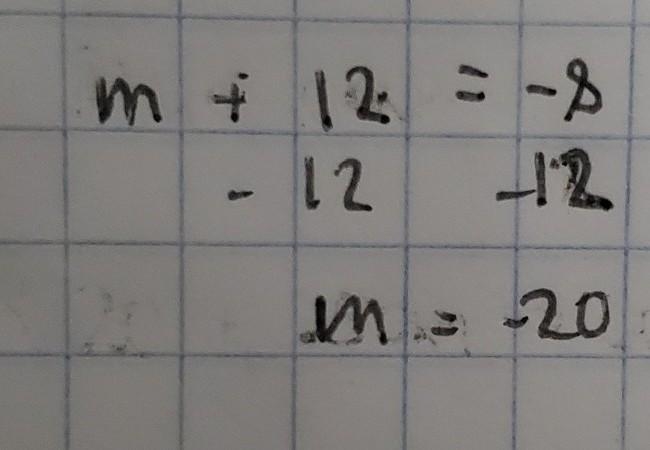 m + 12 = -8
- 12 -12
m = -20